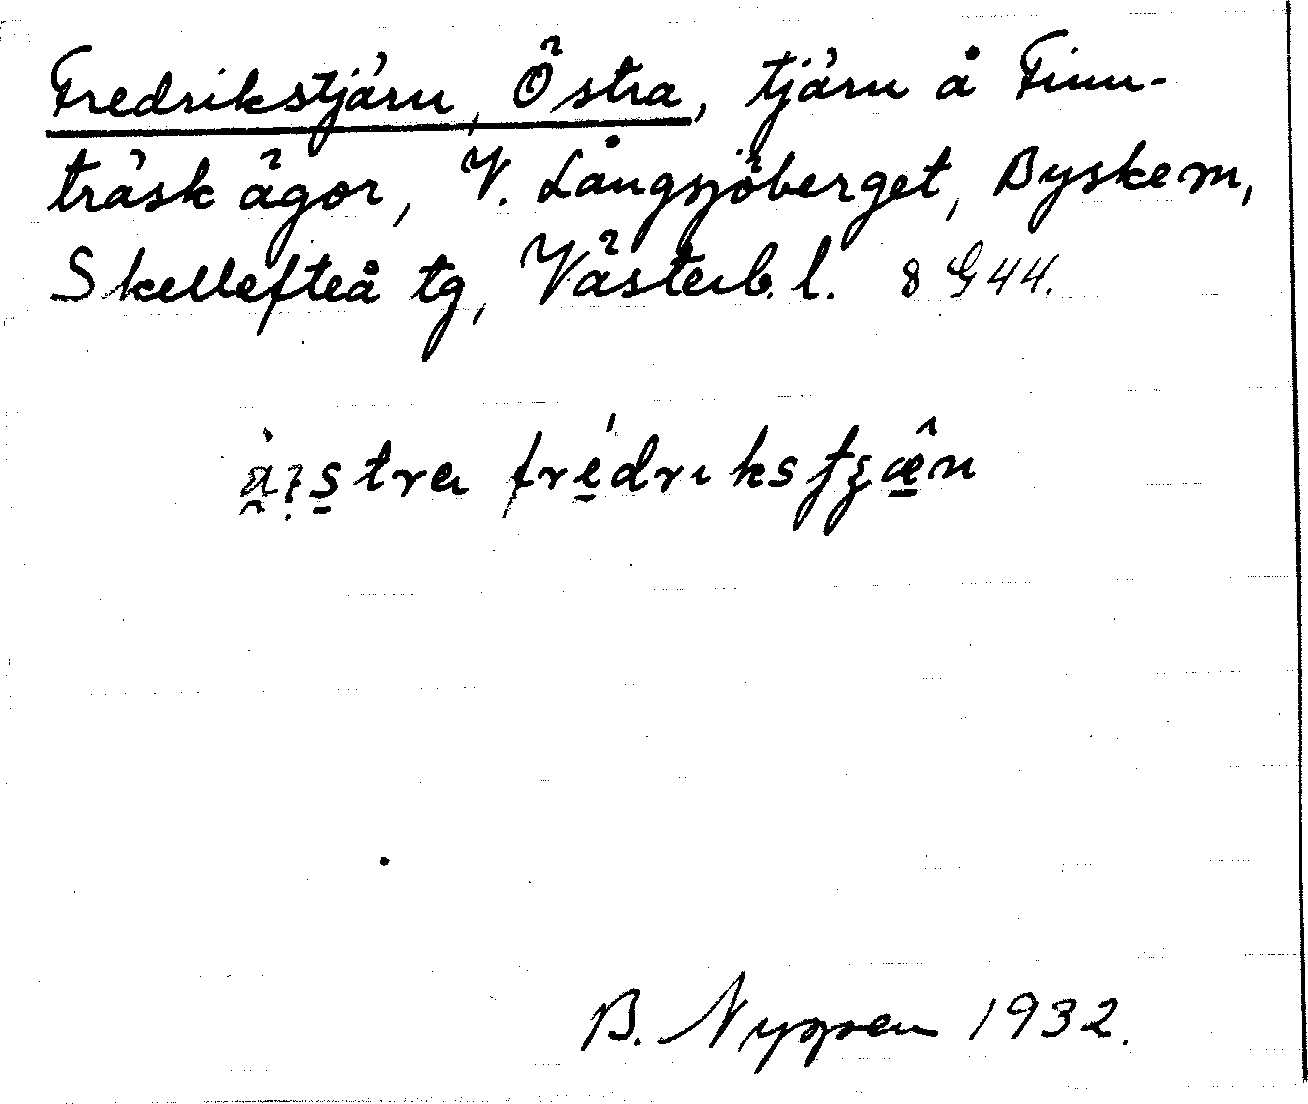 Fredrikstjärn, Östra, tjärn å Finn-
träsk ägor, V. Långsjöberget, Byske sn,
Skellefteå tg, Västerb. l. 8 G 44.
fredrikstjæn
B. Nygren 1932.